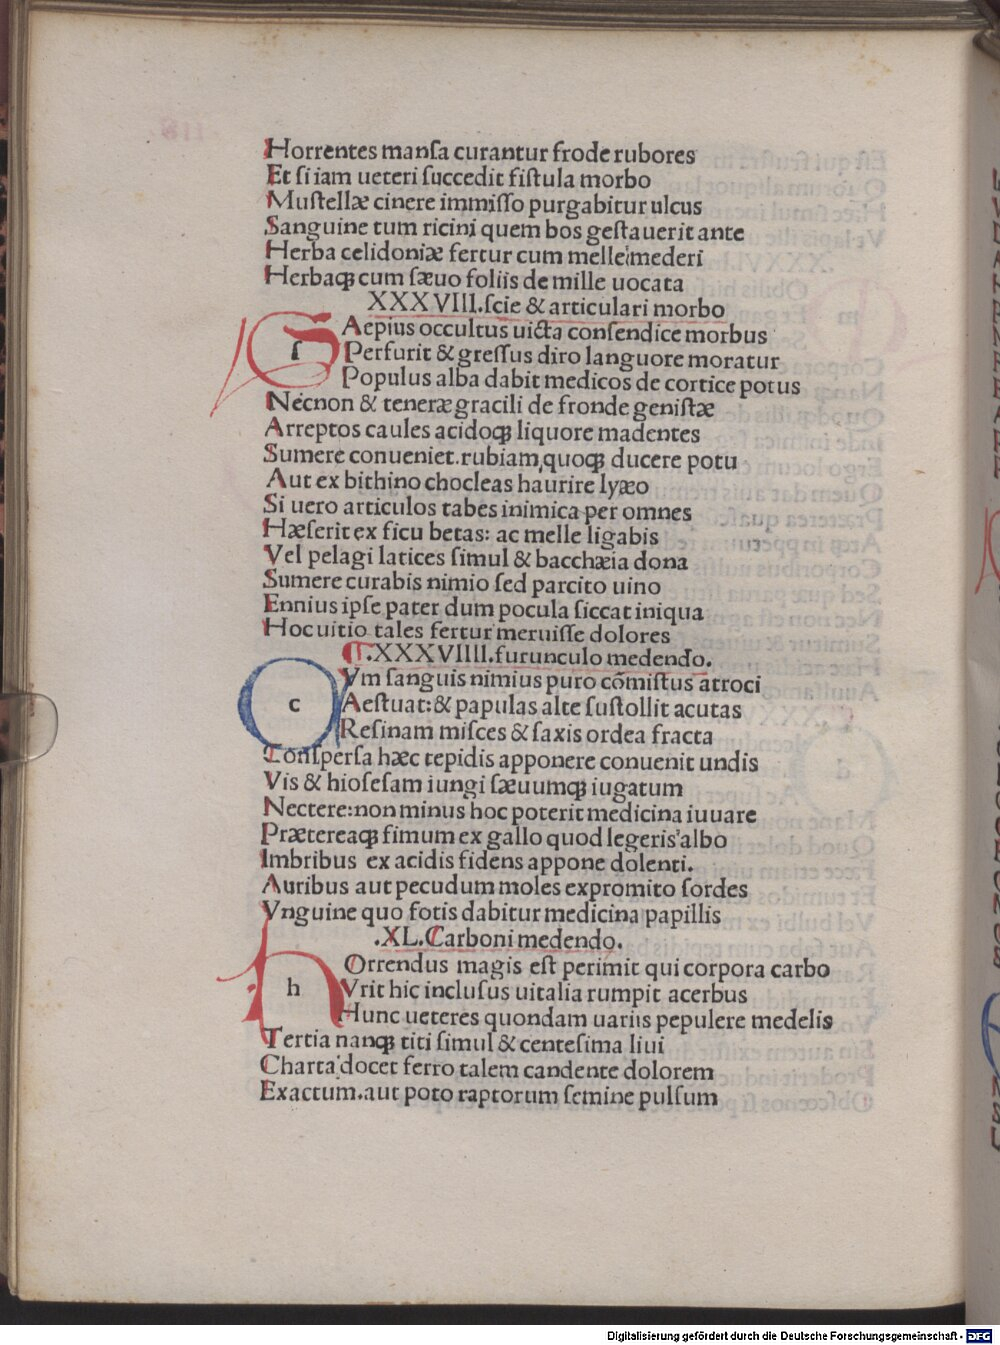 Horrentes manſa curantur frode rubores
Et ſi iam ueteri ſuccedit fiſtula morbo
Muſtellæ cinere immiſſo purgabitur ulcus
Sanguine tum ricini quem bos geſtauerit ante
Herba celidoniæ fertur cum melle mederi
Herbaqꝫ cum ſæuo foliis de mille uocata
XXXVIII.ſcie & articulari morbo
SAepius occultus uicta conſendice morbus
ſ Perfurit & greſſus diro languore moratur
Populus alba dabit medicos de cortice potus
Necnon & teneræ gracili de fronde geniſtæ
Arreptos caules acidoqꝫ liquore madentes
Sumere conueniet.rubiam quoqꝫ ducere potu
Aut ex bithino chocleas haurire lyæo
Si uero articulos tabes inimica per omnes
Hæſerit ex ficu betas: ac melle ligabis
Vel pelagi latices ſimul & bacchæia dona
Sumere curabis nimio ſed parcito uino
Ennius ipſe pater dum pocula ſiccat iniqua
Hoc uitio tales fertur meruiſſe dolores
.XXXVIIII.furunculo medendo.
CVm ſanguis nimius puro cōmiſtus atroci
c Aeſtuat:& papulas alte ſuſtollit acutas
Reſinam miſces & ſaxis ordea fracta
Conſperſa hæc tepidis apponere conuenit undis
Vis & hioſeſam iungi ſæuumqꝫ iugatum
Nectere:non minus hoc poterit medicina iuuare
Prætereaqꝫ fimum ex gallo quod legeris albo
Imbribus ex acidis fidens appone dolenti.
Auribus aut pecudum moles expromito ſordes
Vnguine quo fotis dabitur medicina papillis
.XL.Carboni medendo.
HOrrendus magis eſt perimit qui corpora carbo
h Vrit hic incluſus uitalia rumpit acerbus
Hunc ueteres quondam uariis pepulere medelis
Tertia nanqꝫ titi ſimul & centeſima liui
Charta docet ferro talem candente dolorem
Exactum.aut poto raptorum ſemine pulſum
Digitalisierung gefördert durch die Deutsche Forschungsgemeinschaft - DFG